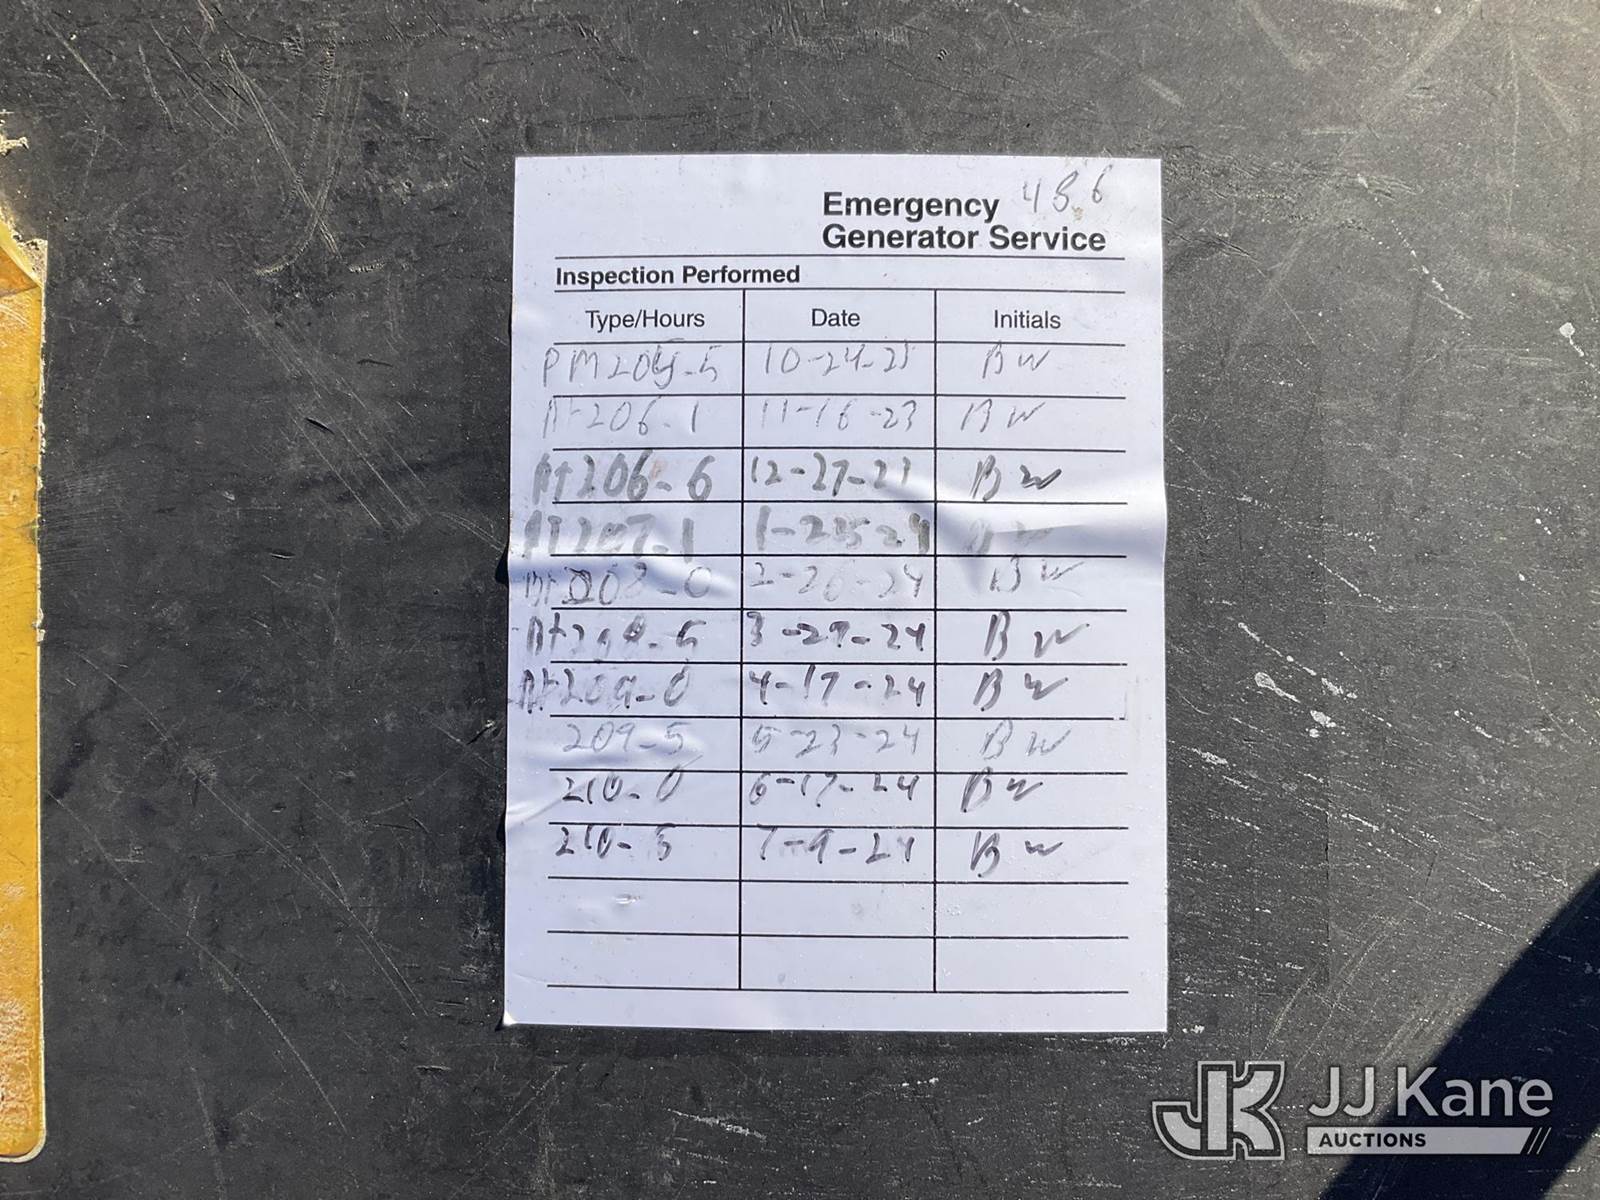 Emergency 48.6
Generator Service
Inspection Performed
Type/Hours Date Initials
PM 205-5 10-24-23 BW
At 206-1 11-16-23 BW
At 206-6 12-27-23 BW
At 207-1 1-25-24 BW
At 208-0 2-26-24 BW
At 5 3-29-24 BW
At 209-0 4-17-24 BW
209-5 5-23-24 BW
210-0 6-17-24 BW
210-5 7-9-24 BW
JK JJ Kane
AUCTIONS